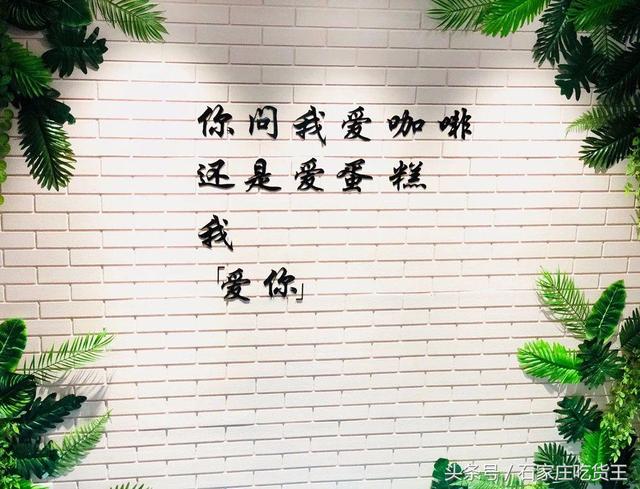 你问我爱咖啡
还是爱蛋糕
我
「爱你」
头条号 / 石家庄吃货王